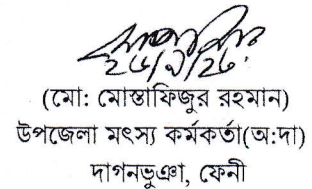 ২৬/১/২৬
(মো: মোস্তাফিজুর রহমান)
উপজেলা মৎস্য কর্মকর্তা(অ:দা)
দাগনভুঞা, ফেনী